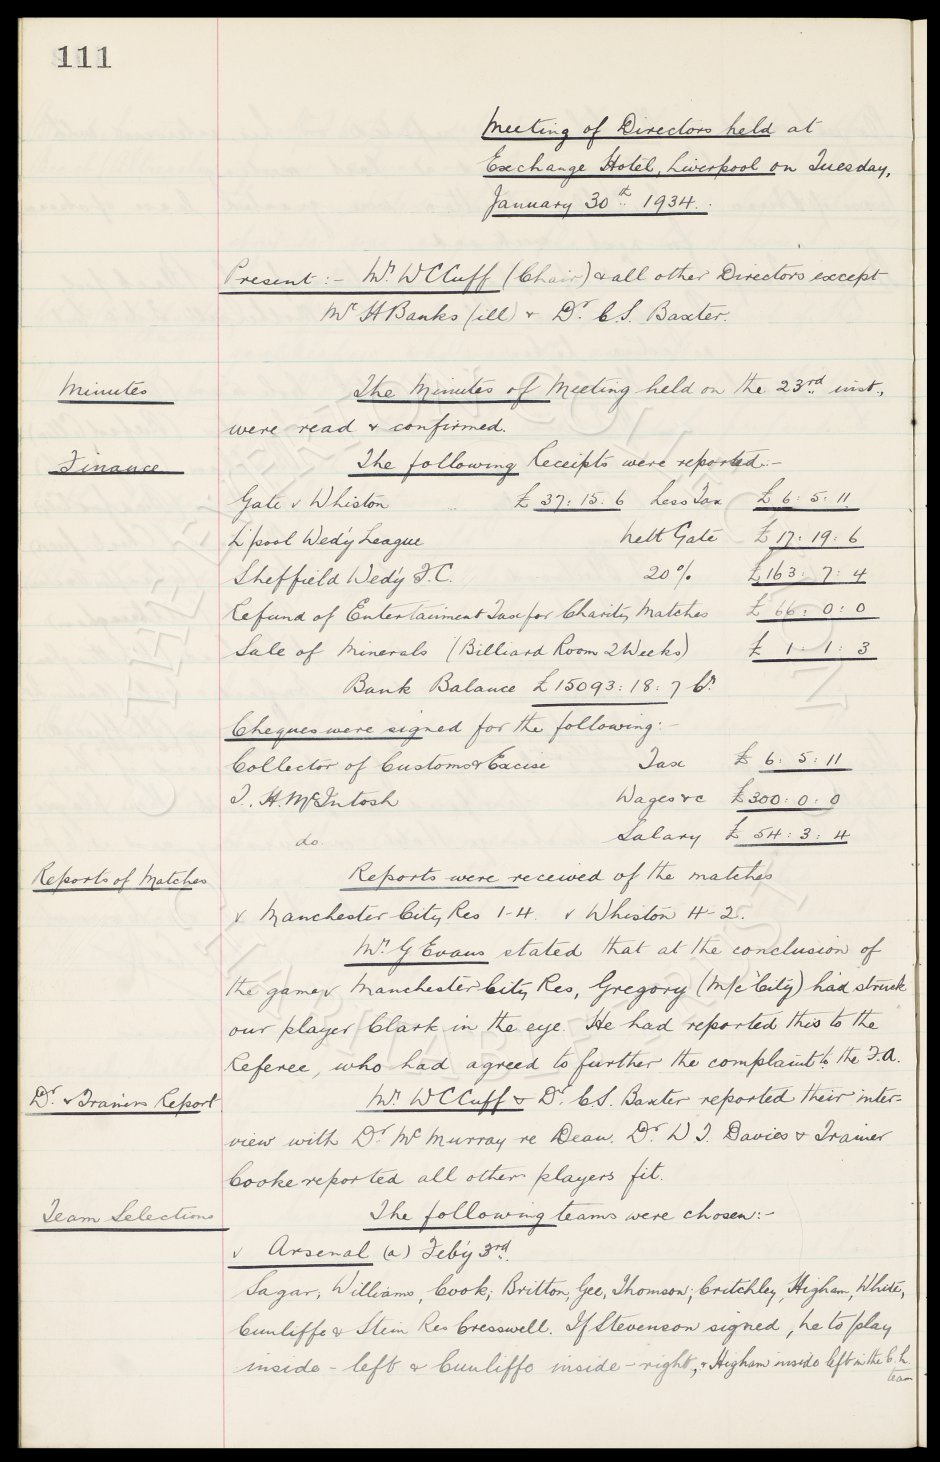 111
Meeting of Directors held at
Exchange Hotel, Liverpool on Tuesday,
January 30th 1934.
Present :- Mr. W C Cuff (Chair) & all other Directors except
Mr H Banks (ill) & Dr. C.S. Baxter.
Minutes
The Minutes of Meeting held on the 23rd inst.,
were read & confirmed.
Finance
The following Receipts were reported:-
Gate v Whiston £ 37: 15: 6 Less Tax £ 6: 5: 11
L'pool Wed'y League Nett Gate £ 17: 19: 6
Sheffield Wed'y F.C. 20% £163: 7: 4
Refund of Entertainment Tax for Charity Matches £ 66: 0: 0
Sale of Minerals (Billiard Room 2 Weeks) £ 1: 1: 3
Bank Balance £15093: 18: 7 Cr
Cheques were signed for the following:-
Collector of Customs & Excise Tax £ 6: 5: 11
T. H. McIntosh Wages &c £300: 0: 0
do. Salary £ 54: 3: 4
Reports of Matches
Reports were received of the matches
v Manchester City Res 1-4. v Whiston 4-2.
Mr. G Evans stated that at the conclusion of
the game v Manchester City Res, Gregory (M/c City) had struck
our player Clark in the eye. He had reported this to the
Referee, who had agreed to further the complaint to the F.A.
Dr. & Trainers Report
Mr. W C Cuff & Dr. C.S. Baxter reported their inter-
view with Dr. McMurray re Dean. Dr. W T. Davies & Trainer
Cooke reported all other players fit.
Team Selections
The following teams were chosen:-
v Arsenal (a) Feb'y 3rd.
Sagar, Williams, Cook; Britton, Gee, Thomson; Critchley, Higham, White,
Cunliffe & Stein Res Cresswell. If Stevenson signed, he to play
inside-left & Cunliffe inside-right, & Higham inside left in the C.L.
team